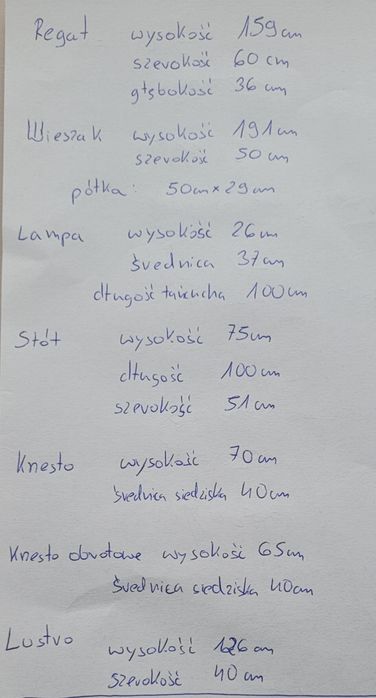 Regał wysokość 159 cm
szerokość 60 cm
głębokość 36 cm
Wieszak wysokość 191 cm
szerokość 50 cm
półka: 50cm × 29cm
Lampa wysokość 26 cm
średnica 37 cm
długość łańcucha 100 cm
Stół wysokość 75 cm
długość 100 cm
szerokość 51 cm
Krzesło wysokość 70 cm
średnica siedziska 40 cm
Krzesło obrotowe wysokość 65cm
średnica siedziska 40cm
Lustro wysokość 126 cm
szerokość 40 cm